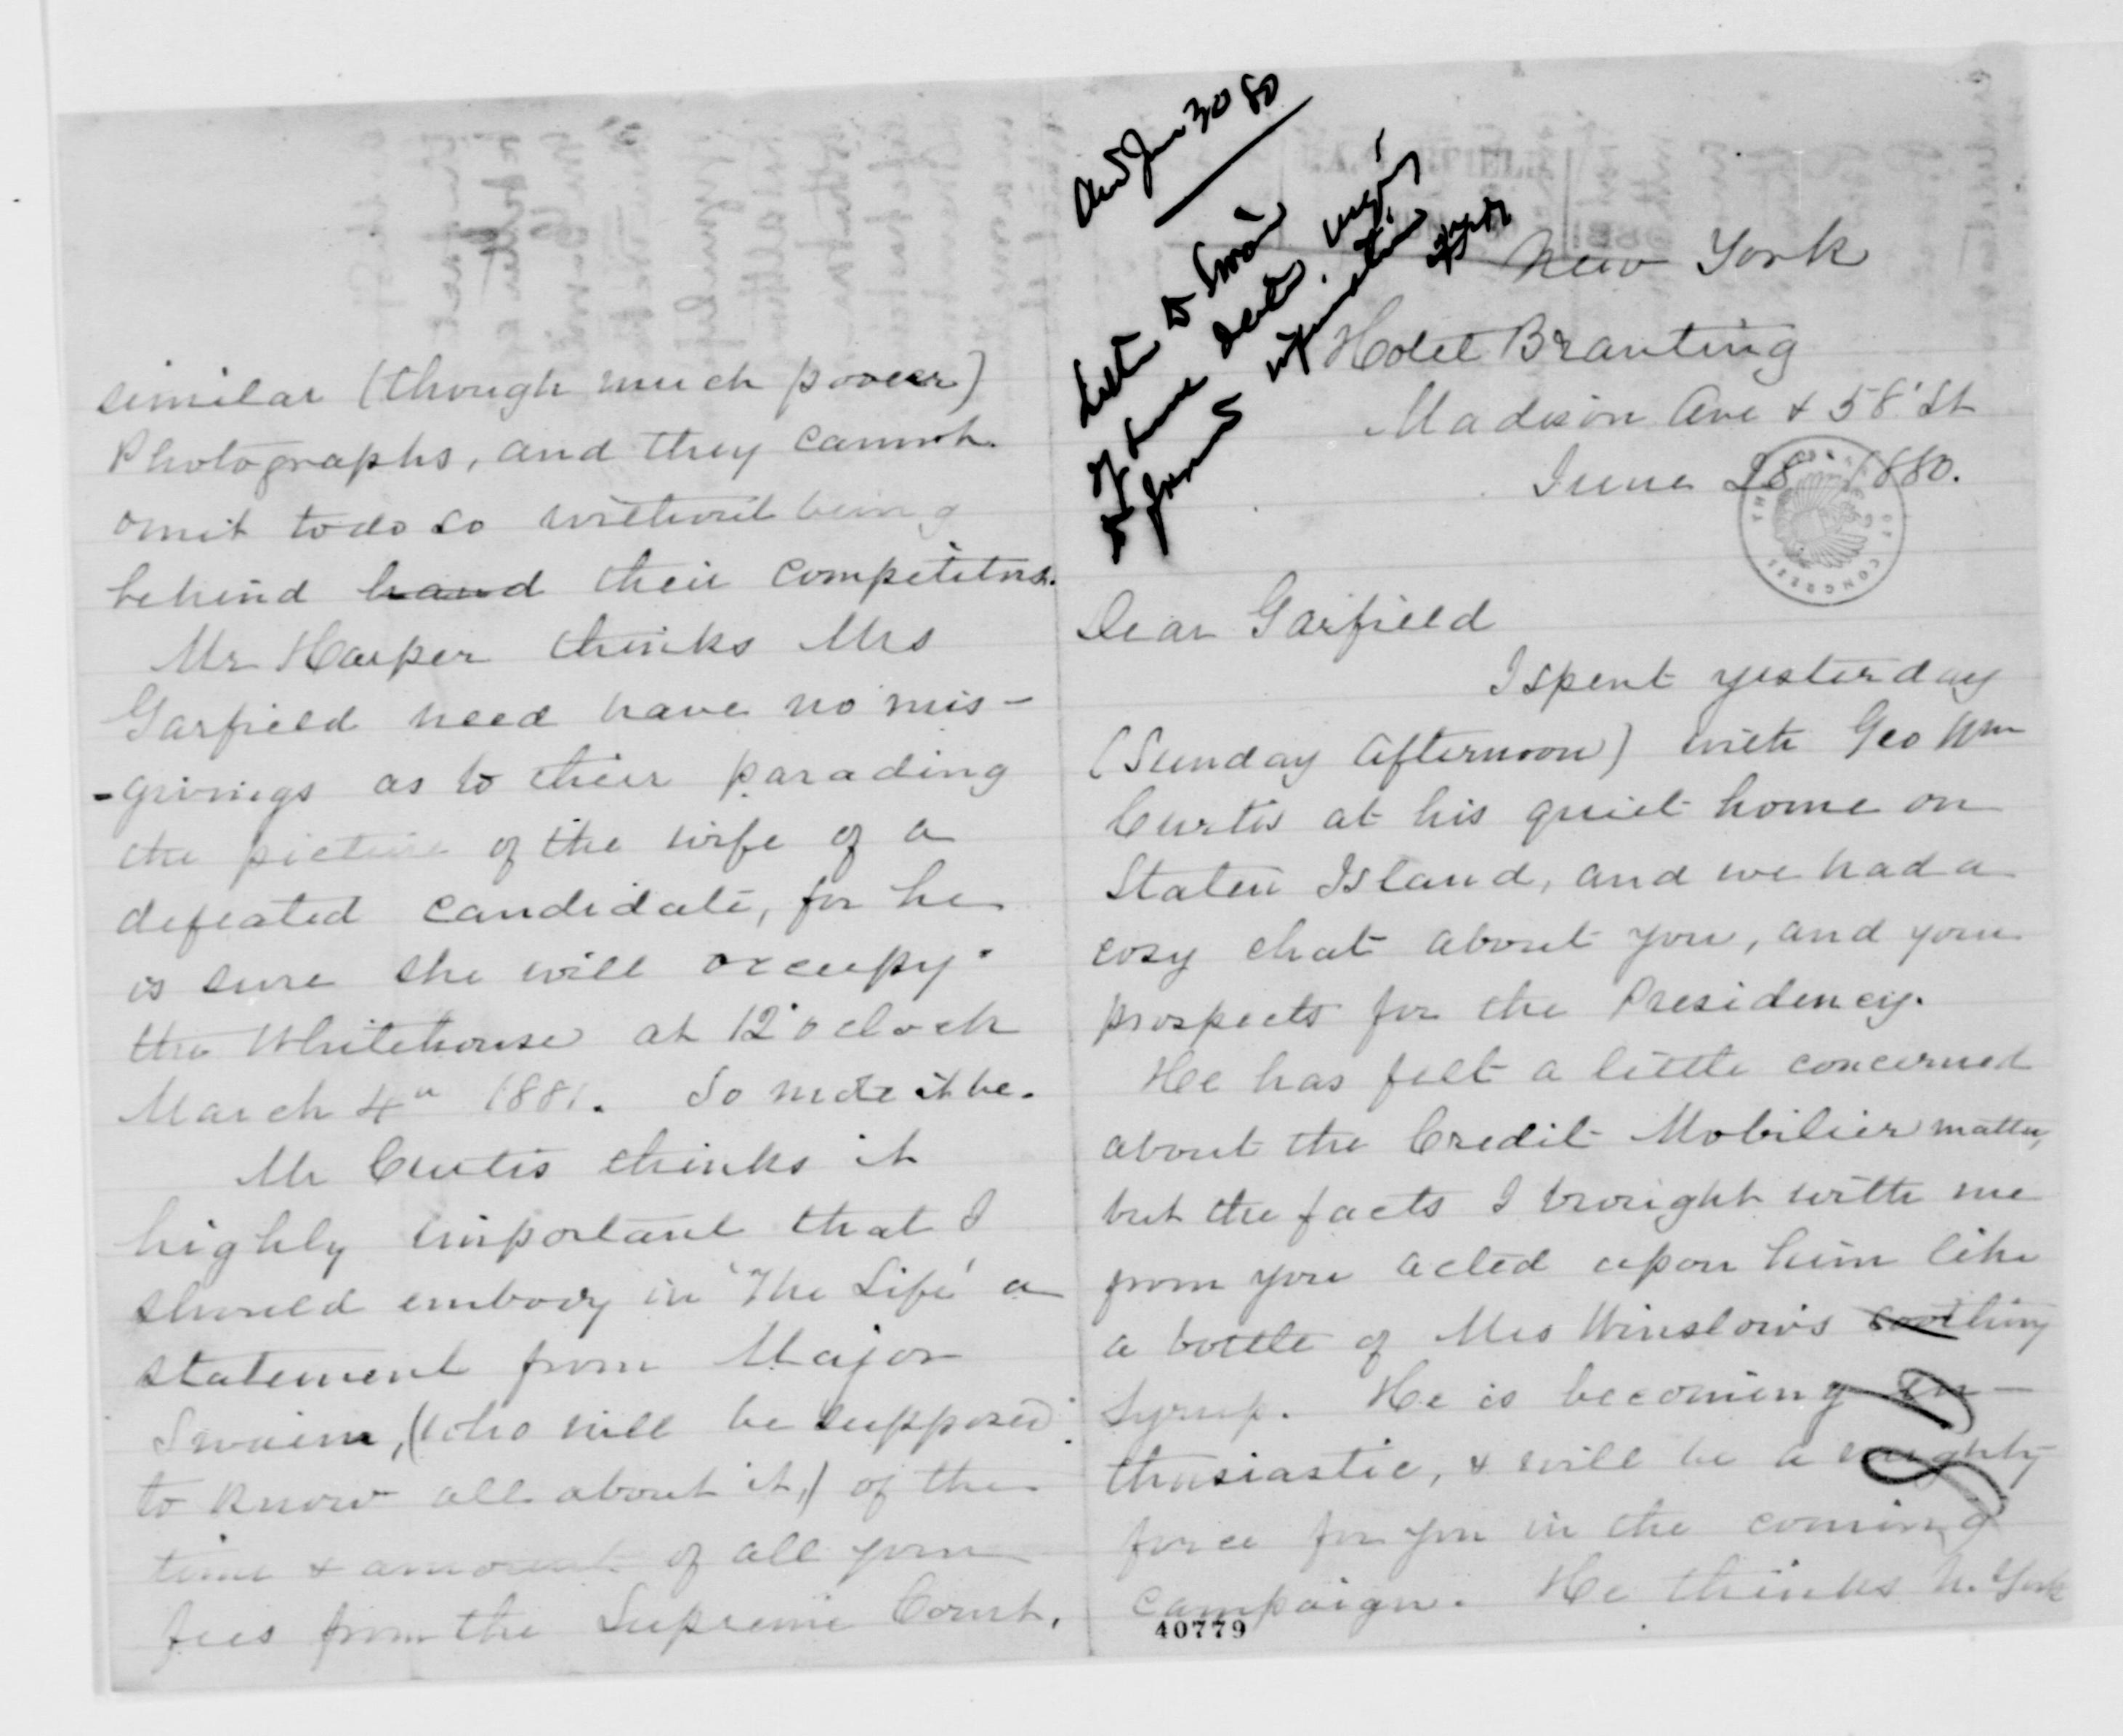 New York
Hotel Branting
Madison Ave & 58' St
June 28 1880.
Dear Garfield
I spent yesterday
(Sunday afternoon) with Geo Wm
Curtis at his quiet home on
Staten Island, and we had a
cosy chat about you, and your
prospects for the Presidency.
He has felt a little concerned
about the Credit Mobilier matter,
but the facts I brought with me
from you acted upon him like
a bottle of Mrs Winslow's soothing
Syrup. He is becoming en-
thusiastic, & will be a mighty
force for you in the coming
campaign. He thinks N. York
40779
similar (though much poorer)
Photographs, and they cannot
omit to do so without being
behind hand their competitors.
Mr Harper thinks Mrs
Garfield need have no mis-
-givings as to their parading
the picture of the wife of a
defeated candidate, for he
is sure she will occupy
the Whitehouse at 12 o'clock
March 4th 1881. So mote it be.
Mr Curtis thinks it
highly important that I
should embody in 'The Life' a
statement from Major
Swaim, (who will be supposed
to know all about it,) of the
time & amount of all your
fees from the Supreme Court.
Jun 30 80
Letter to Swaim
of same date.
to furnish information
THE CONGRESS